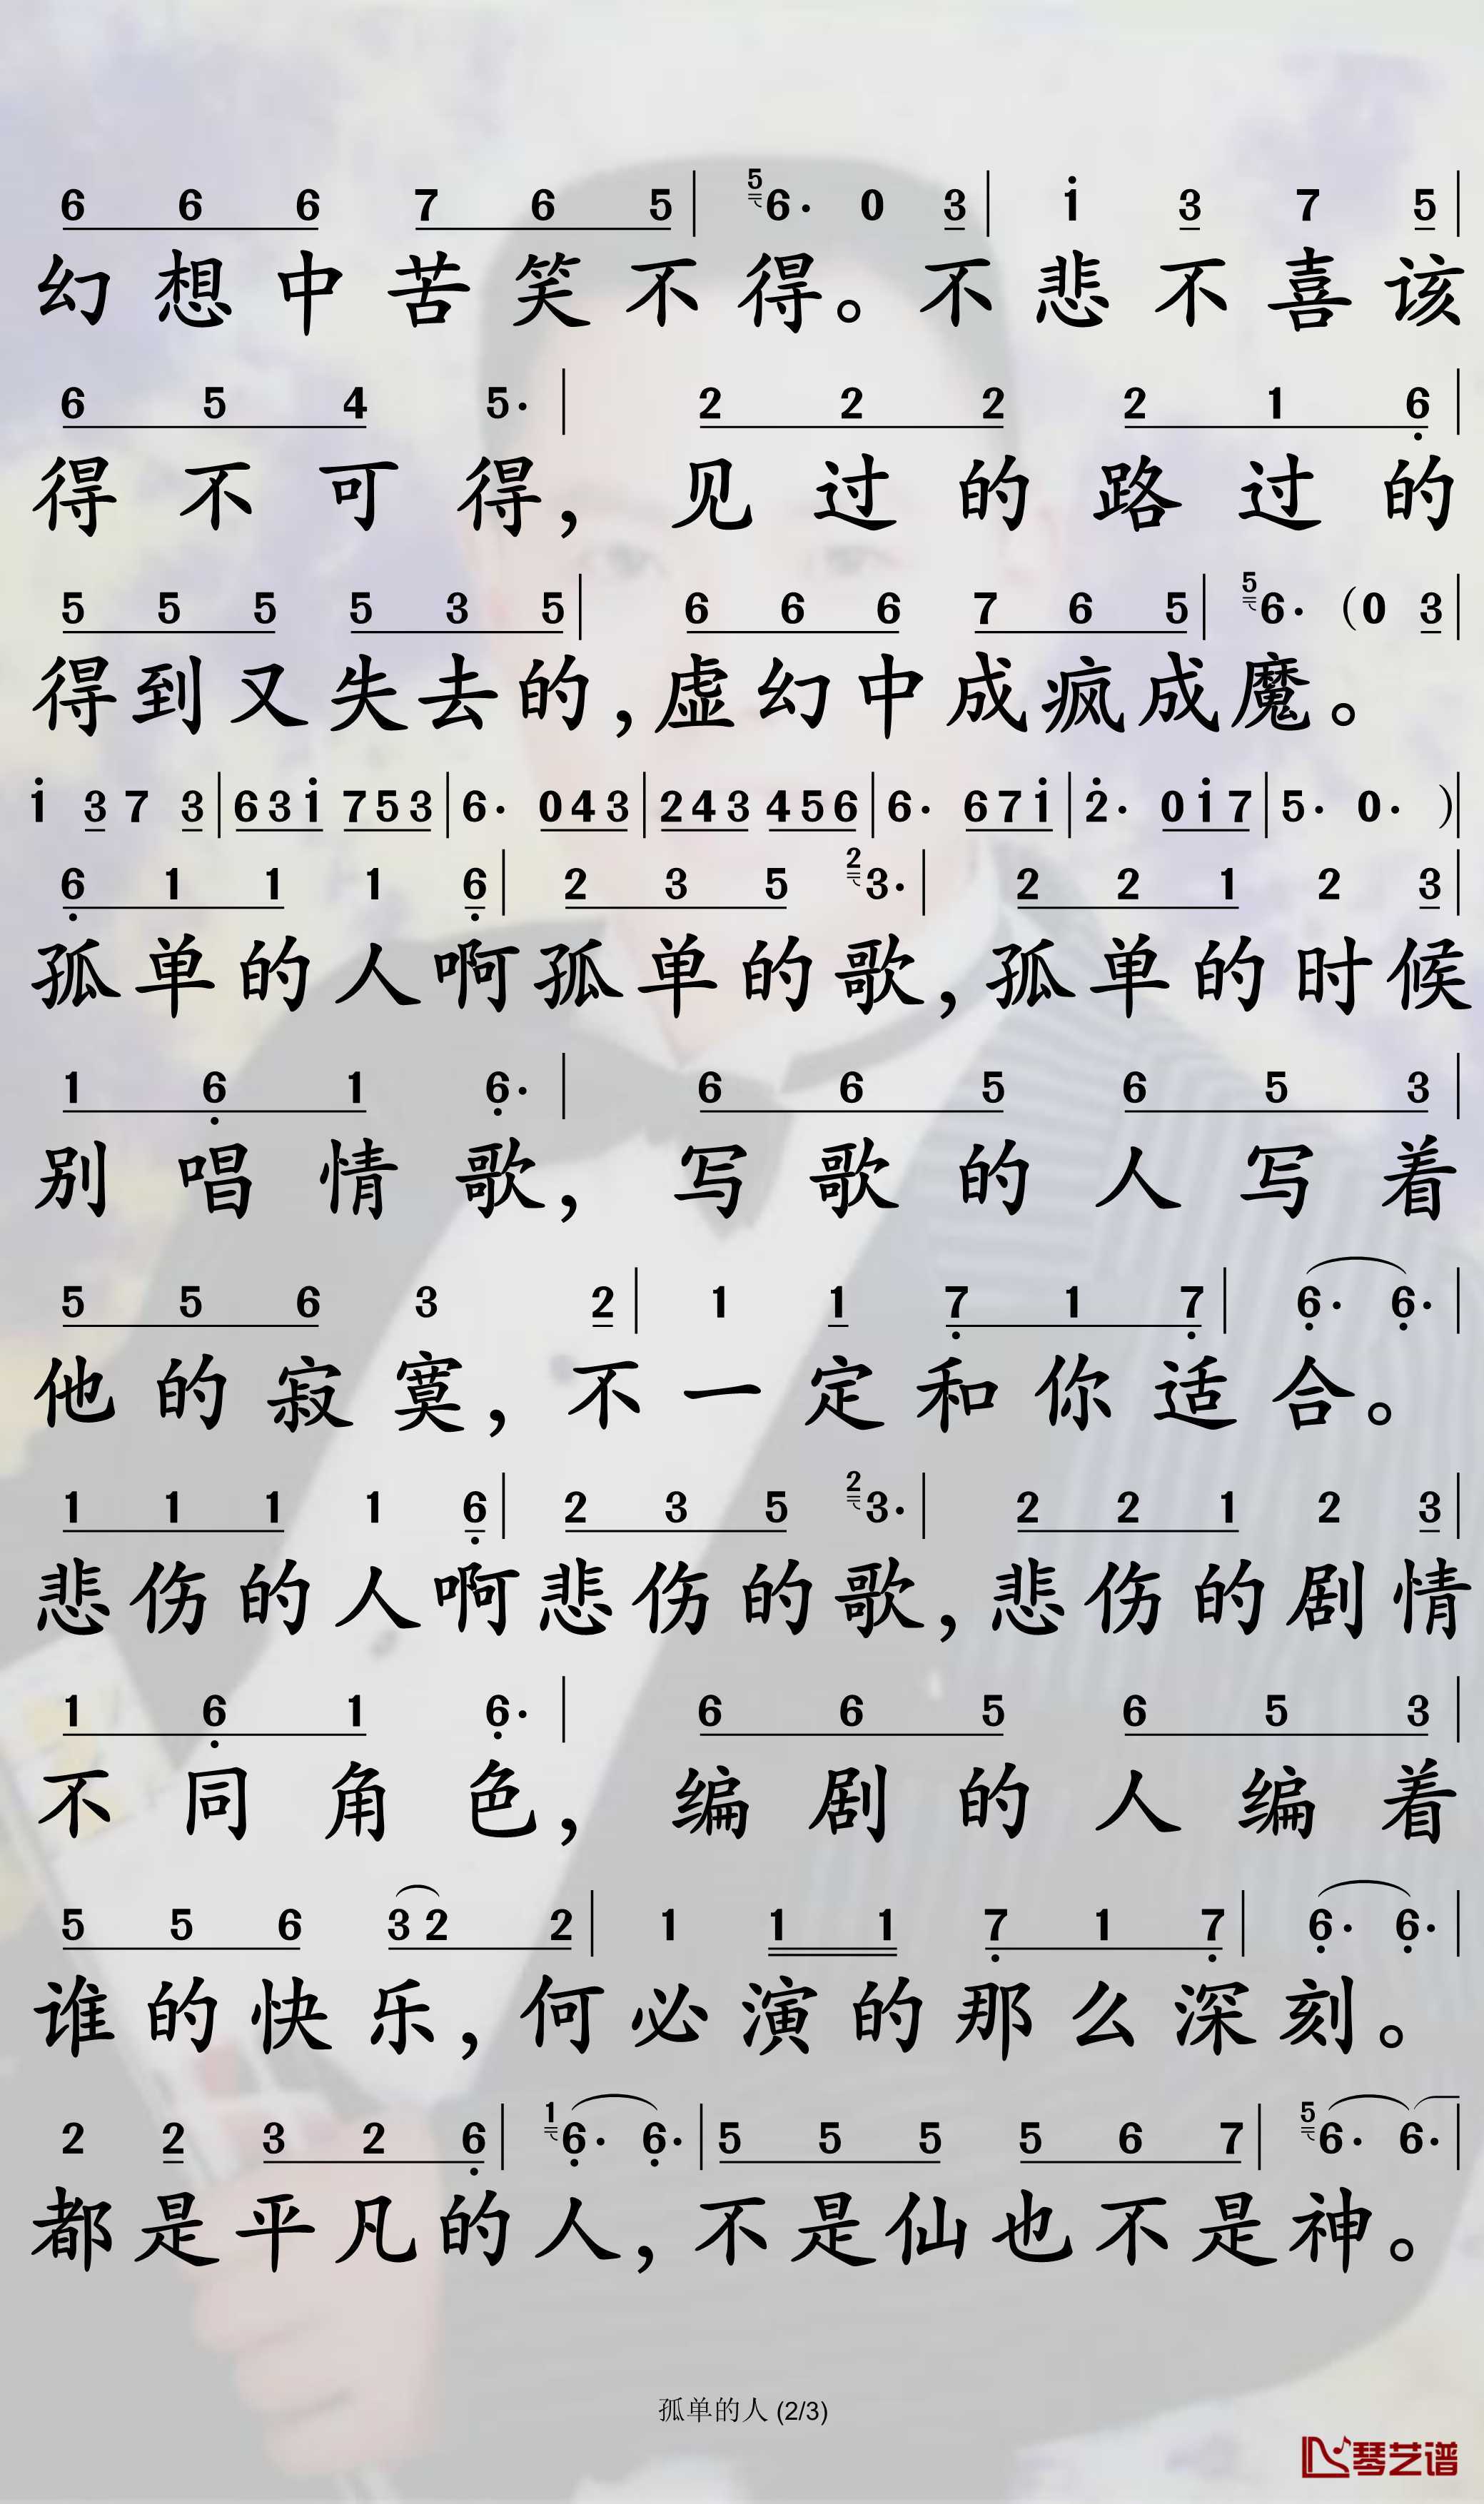 6 6 6 7 6 5 | 5 6· 0 3 | i 3 7 5 |
幻想中苦笑不得。不悲不喜该
6 5 4 5· | 2 2 2 2 1 6̣ |
得不可得，见过的路过的
5 5 5 5 3 5 | 6 6 6 7 6 5 | 5 6· (0 3 |
得到又失去的，虚幻中成疯成魔。
i 3 7 3 | 6 3 i 7 5 3 | 6· 0 4 3 | 2 4 3 4 5 6 | 6· 6 7 i | 2̇· 0 i 7 | 5· 0· )|
6̣ 1 1 1 6̣ | 2 3 5 2 3· | 2 2 1 2 3 |
孤单的人啊孤单的歌，孤单的时候
1 6̣ 1 6̣· | 6 6 5 6 5 3 |
别唱情歌，写歌的人写着
5 5 6 3 2 | 1 1 7̣ 1 7̣ | 6̣· 6̣· |
他的寂寞，不一定和你适合。
1 1 1 1 6̣ | 2 3 5 2 3· | 2 2 1 2 3 |
悲伤的人啊悲伤的歌，悲伤的剧情
1 6̣ 1 6̣· | 6 6 5 6 5 3 |
不同角色，编剧的人编着
5 5 6 3 2 2 | 1 1 1 7̣ 1 7̣ | 6̣· 6̣· |
谁的快乐，何必演的那么深刻。
2 2 3 2 6̣ | 1 6̣· 6̣· | 5 5 5 5 6 7 | 5 6· 6· |
都是平凡的人，不是仙也不是神。
孤单的人 (2/3)
琴艺谱